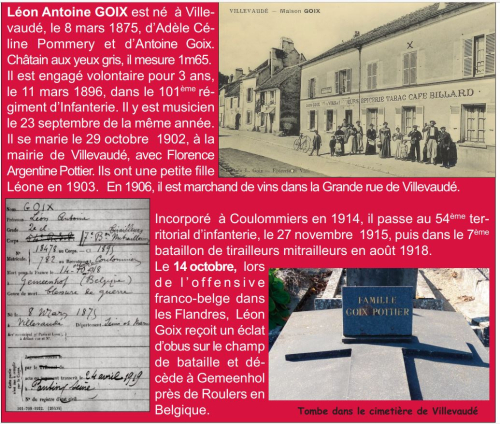 Léon Antoine GOIX est né à Ville-
vaudé, le 8 mars 1875, d'Adèle Cé-
line Pommery et d'Antoine Goix.
Châtain aux yeux gris, il mesure 1m65.
Il est engagé volontaire pour 3 ans,
le 11 mars 1896, dans le 101ème ré-
giment d'Infanterie. Il y est musicien
le 23 septembre de la même année.
Il se marie le 29 octobre 1902, à la
mairie de Villevaudé, avec Florence
Argentine Pottier. Ils ont une petite fille
Léone en 1903. En 1906, il est marchand de vins dans la Grande rue de Villevaudé.
VILLEVAUDÉ - Maison GOIX
EPICERIE TABAC CAFÉ BILLARD
Incorporé à Coulommiers en 1914, il passe au 54ème ter-
ritorial d'infanterie, le 27 novembre 1915, puis dans le 7ème
bataillon de tirailleurs mitrailleurs en août 1918.
Le 14 octobre, lors
de l'offensive
franco-belge dans
les Flandres, Léon
Goix reçoit un éclat
d'obus sur le champ
de bataille et dé-
cède à Gemeenhol
près de Roulers en
Belgique.
GOIX
Léon Antoine
Grade
Corps
Matricule
782
Coulommiers
Mort pour la France le 14
Gemeenhof (Belgique)
Genre de mort blessure de guerre
Né le 8 Mars 1875
Villevaudé Département Seine et Marne
24 avril 1919
N° du registre d'état civil
FAMILLE
GOIX POTTIER
Tombe dans le cimetière de Villevaudé